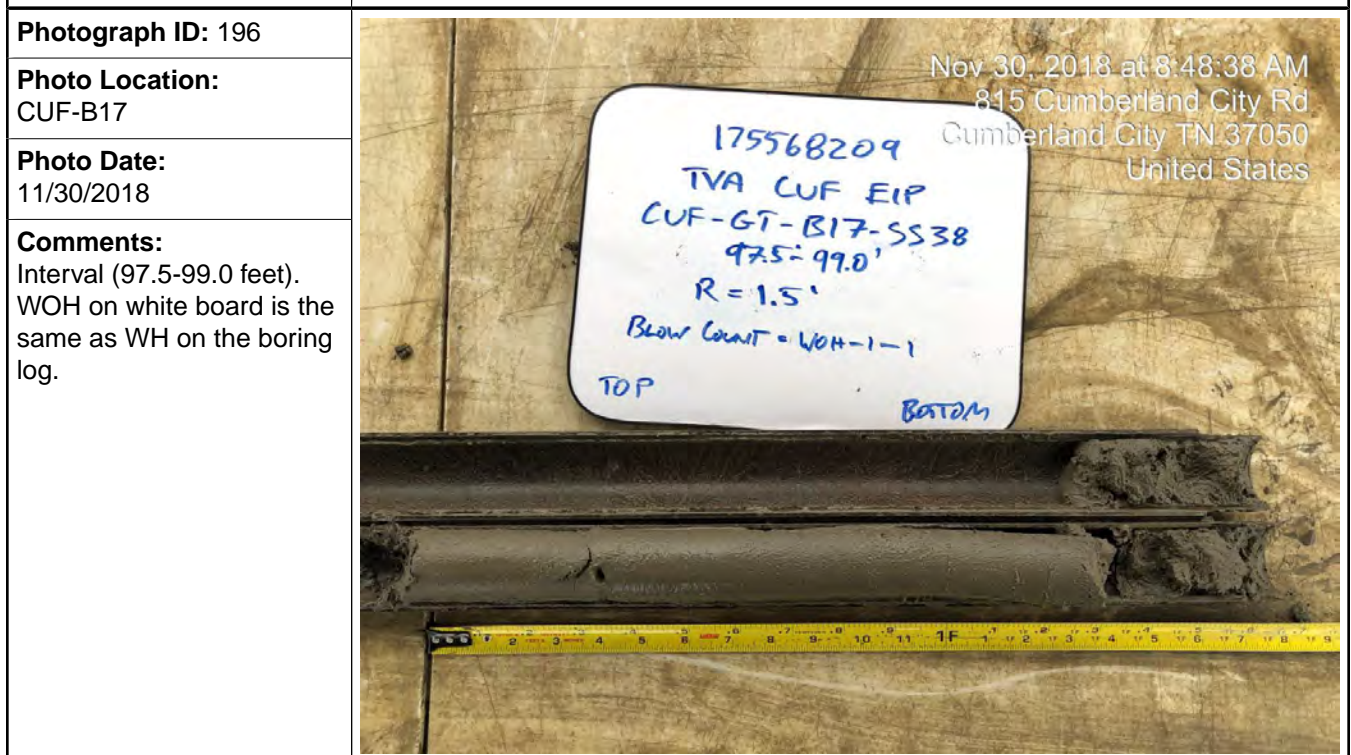 Photograph ID: 196
Photo Location:
CUF-B17
Photo Date:
11/30/2018
Comments:
Interval (97.5-99.0 feet).
WOH on white board is the
same as WH on the boring
log.
Nov 30, 2018 at 8:48:38 AM
815 Cumberland City Rd
Cumberland City TN 37050
United States
175568209
TVA CUF EIP
CUF-GT-B17-SS38
97.5-99.0'
R = 1.5'
BLOW COUNT = WOH-1-1
TOP
BOTTOM
2 3 4 5 6 7 8 9 10 11 1F 1 2 3 4 5 6 7 8 9